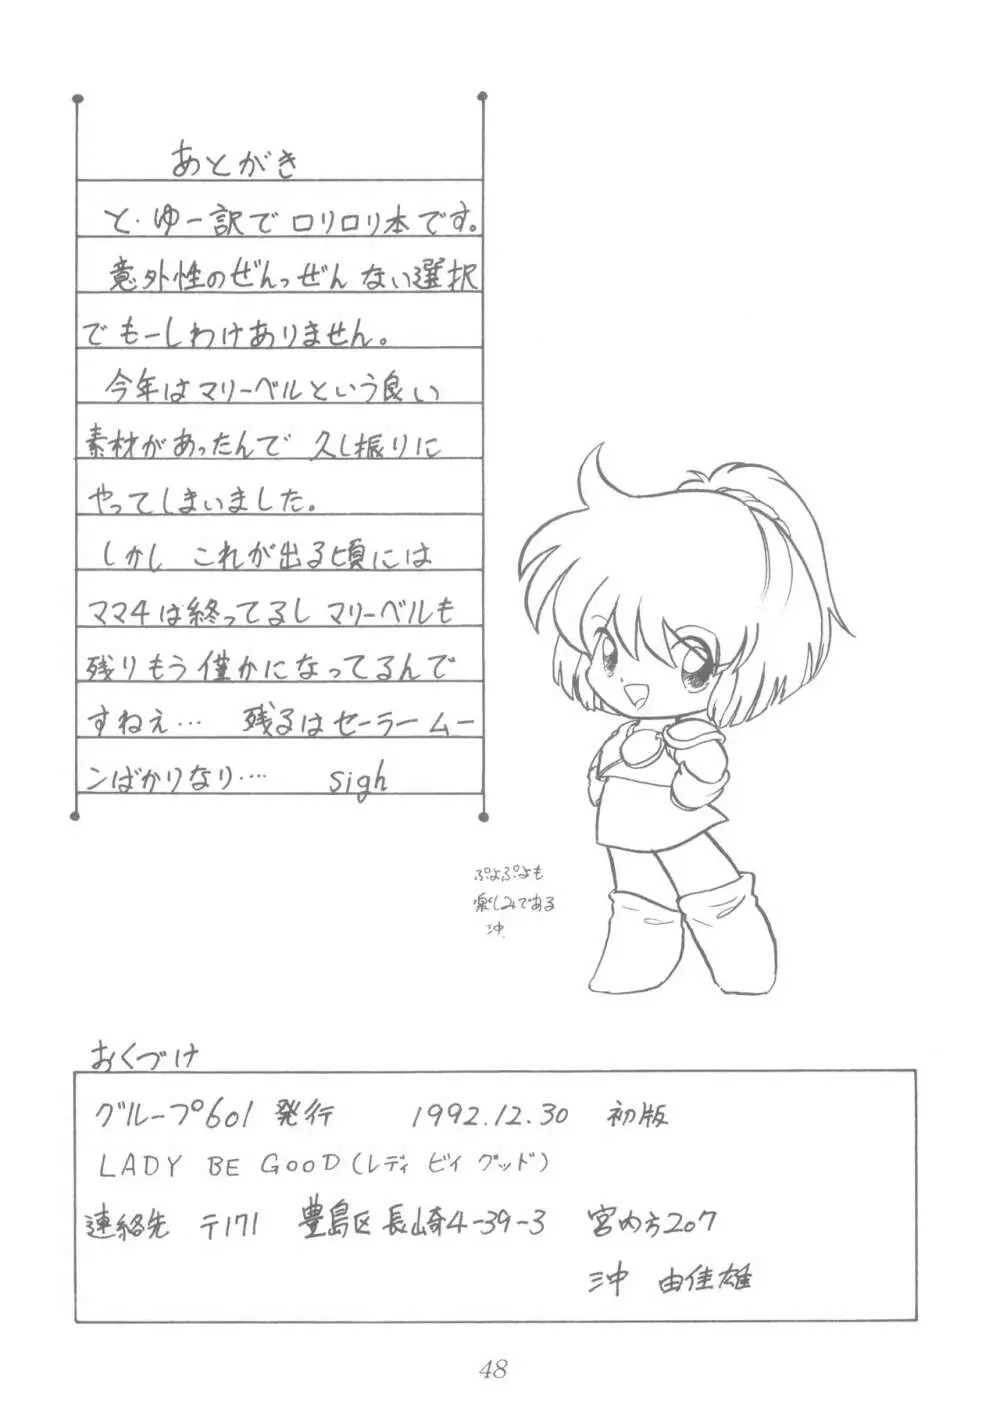 あとがき
と・ゆー訳でロリロリ本です。
意外性のぜんっぜんない選択
でもーしわけありません。
今年はマリーベルという良い
素材があったんで 久し振りに
やってしまいました。
しかし これが出る頃には
ママ4は終ってるし マリーベルも
残りもう僅かになってるんで
すねえ… 残るはセーラームー
ンばかりなり…. sigh
ぷよぷよも
楽しみである
沖
おくづけ
グループ601 発行 1992.12.30 初版
LADY BE GOOD(レディ ビイ グッド)
連絡先 〒171 豊島区長崎4-39-3 宮内方207
沖 由佳雄
48